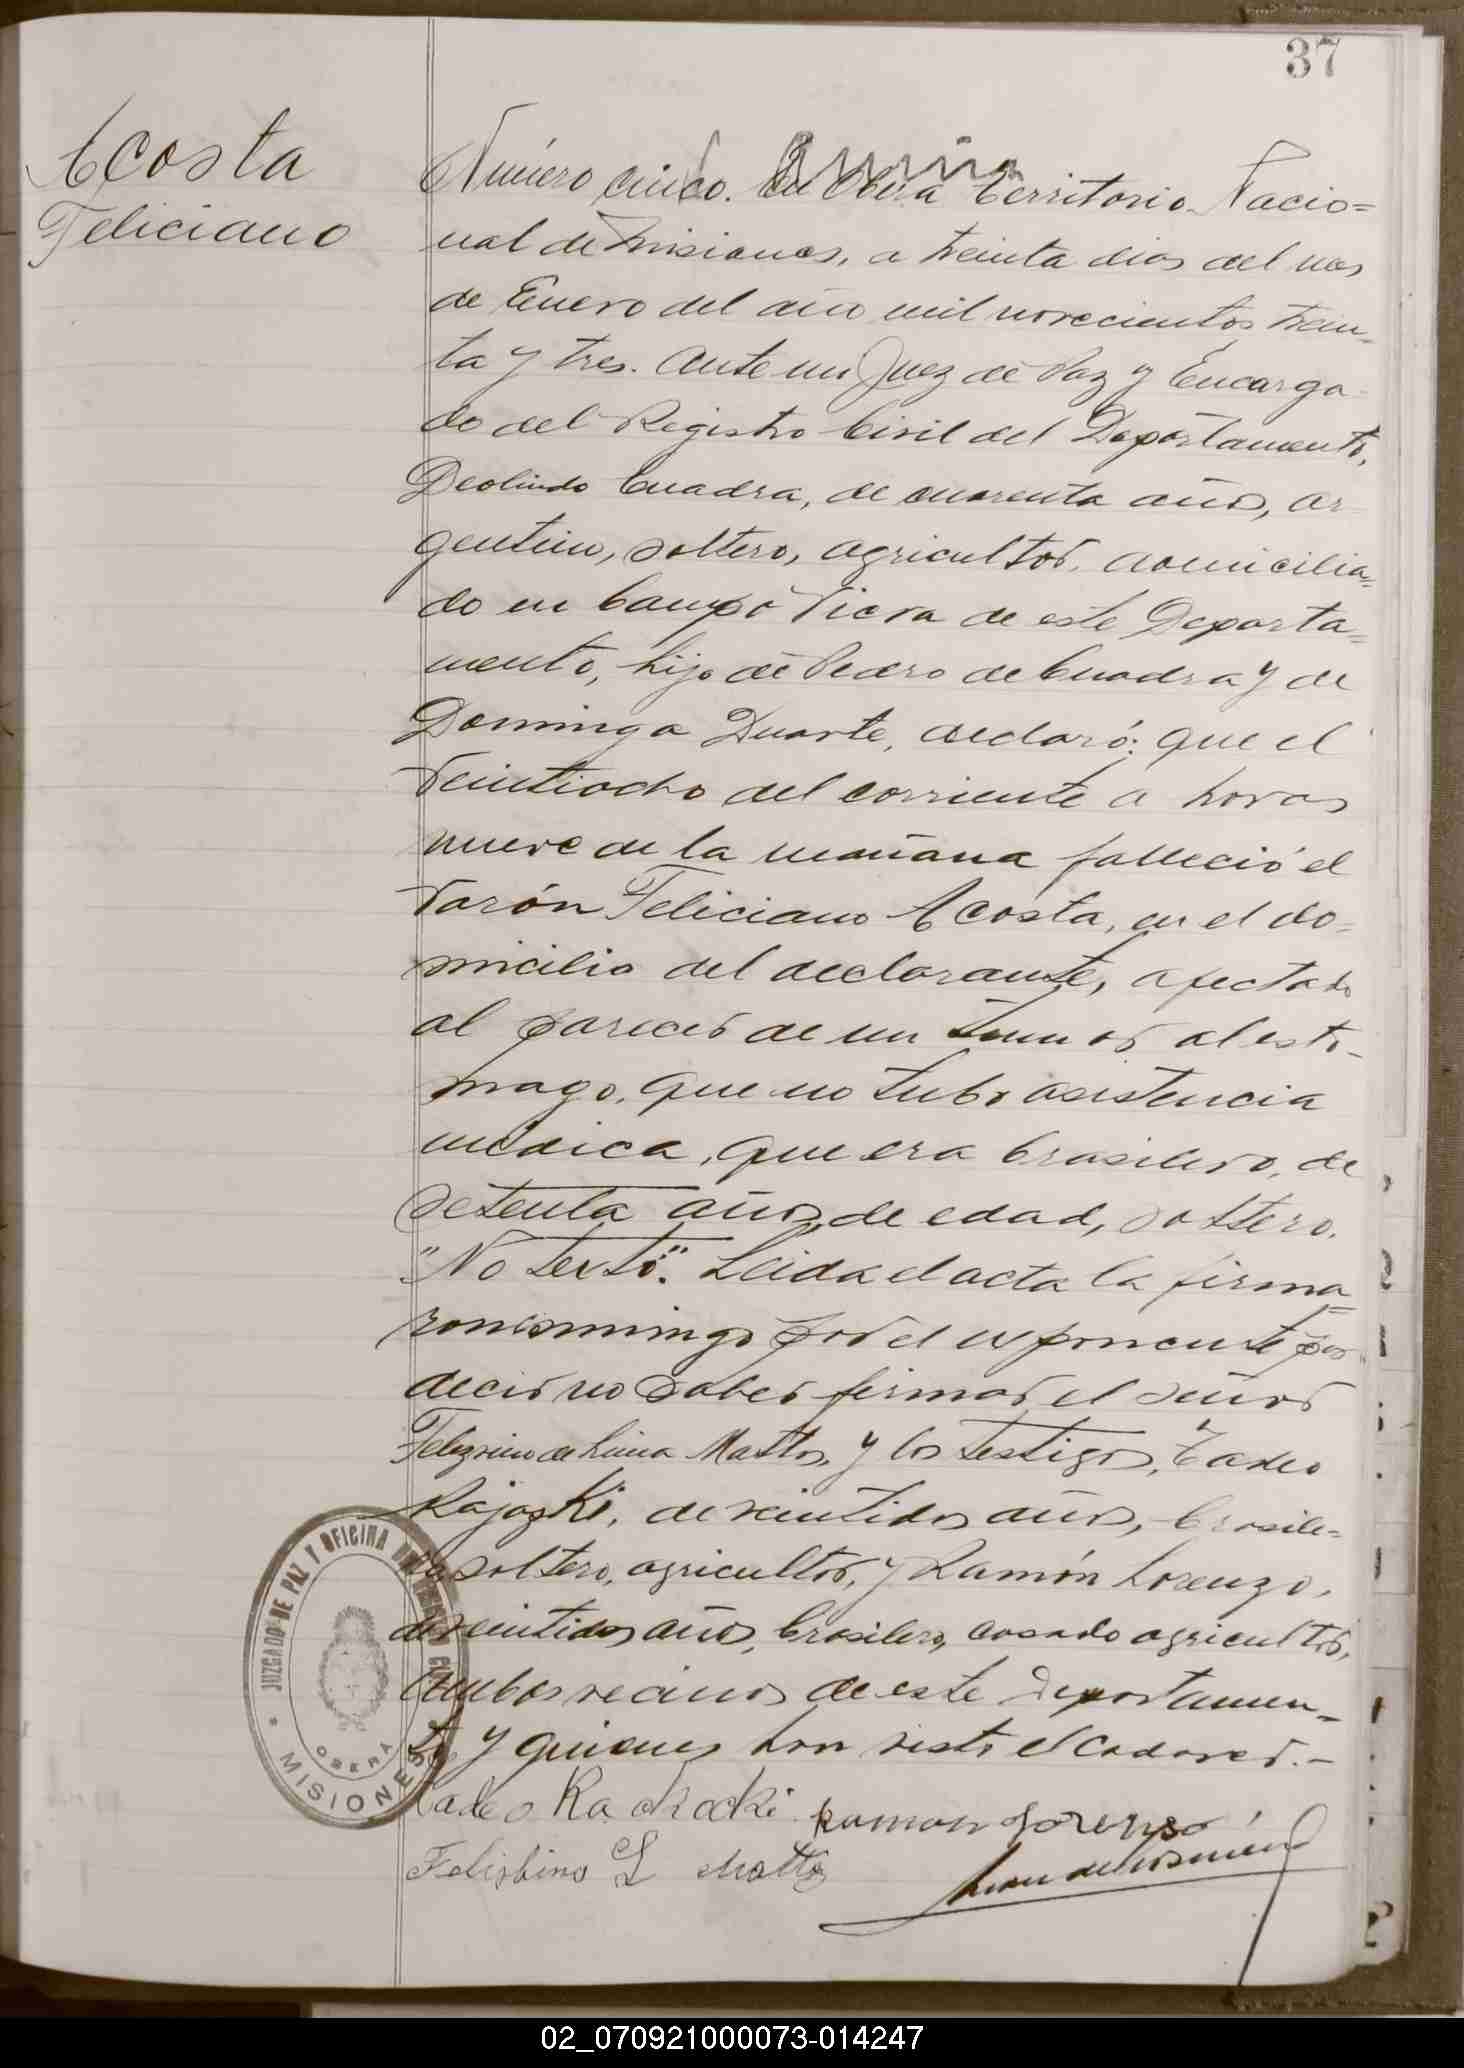 37
Acosta
Feliciano
Número cinco. En Oberá Territorio Nacio=
nal de Misiones, a treinta dias del mes
de Enero del año mil novecientos trein-
ta y tres. Ante mi Juez de Paz y Encarga-
do del Registro Civil del Departamento,
Deolindo Cuadra, de cuarenta años, ar-
gentino, soltero, agricultor, domicilia=
do en Campo Viera de este Departa=
mento, hijo de Pedro de Cuadra y de
Dominga Duarte, declaró: que el
veintiocho del corriente a horas
nueve de la mañana falleció el
varón Feliciano Acosta, en el do=
micilio del declarante, afectado
al parecer de un tumor al esto-
mago, que no tubo asistencia
médica, que era brasilero, de
setenta años de edad, soltero.
"No testó". Leida el acta la firma=
ron conmingo por el exponente por
decir no saber firmar el señor
de Lima Mattos, y los testigos, Tadeo
de veintidos años, brasile=
ro soltero, agricultor, y Ramón Lorenzo,
de veintidos años, brasilero, casado agricultor,
ambos vecinos de este Departamen=
to y quienes han visto el cadaver.-
JUZGADO DE PAZ Y OFICINA DEL REGISTRO CIVIL
OBERÁ
* MISIONES *
Tadeo
Ramon Lorenso
L Mattos
02_070921000073-014247